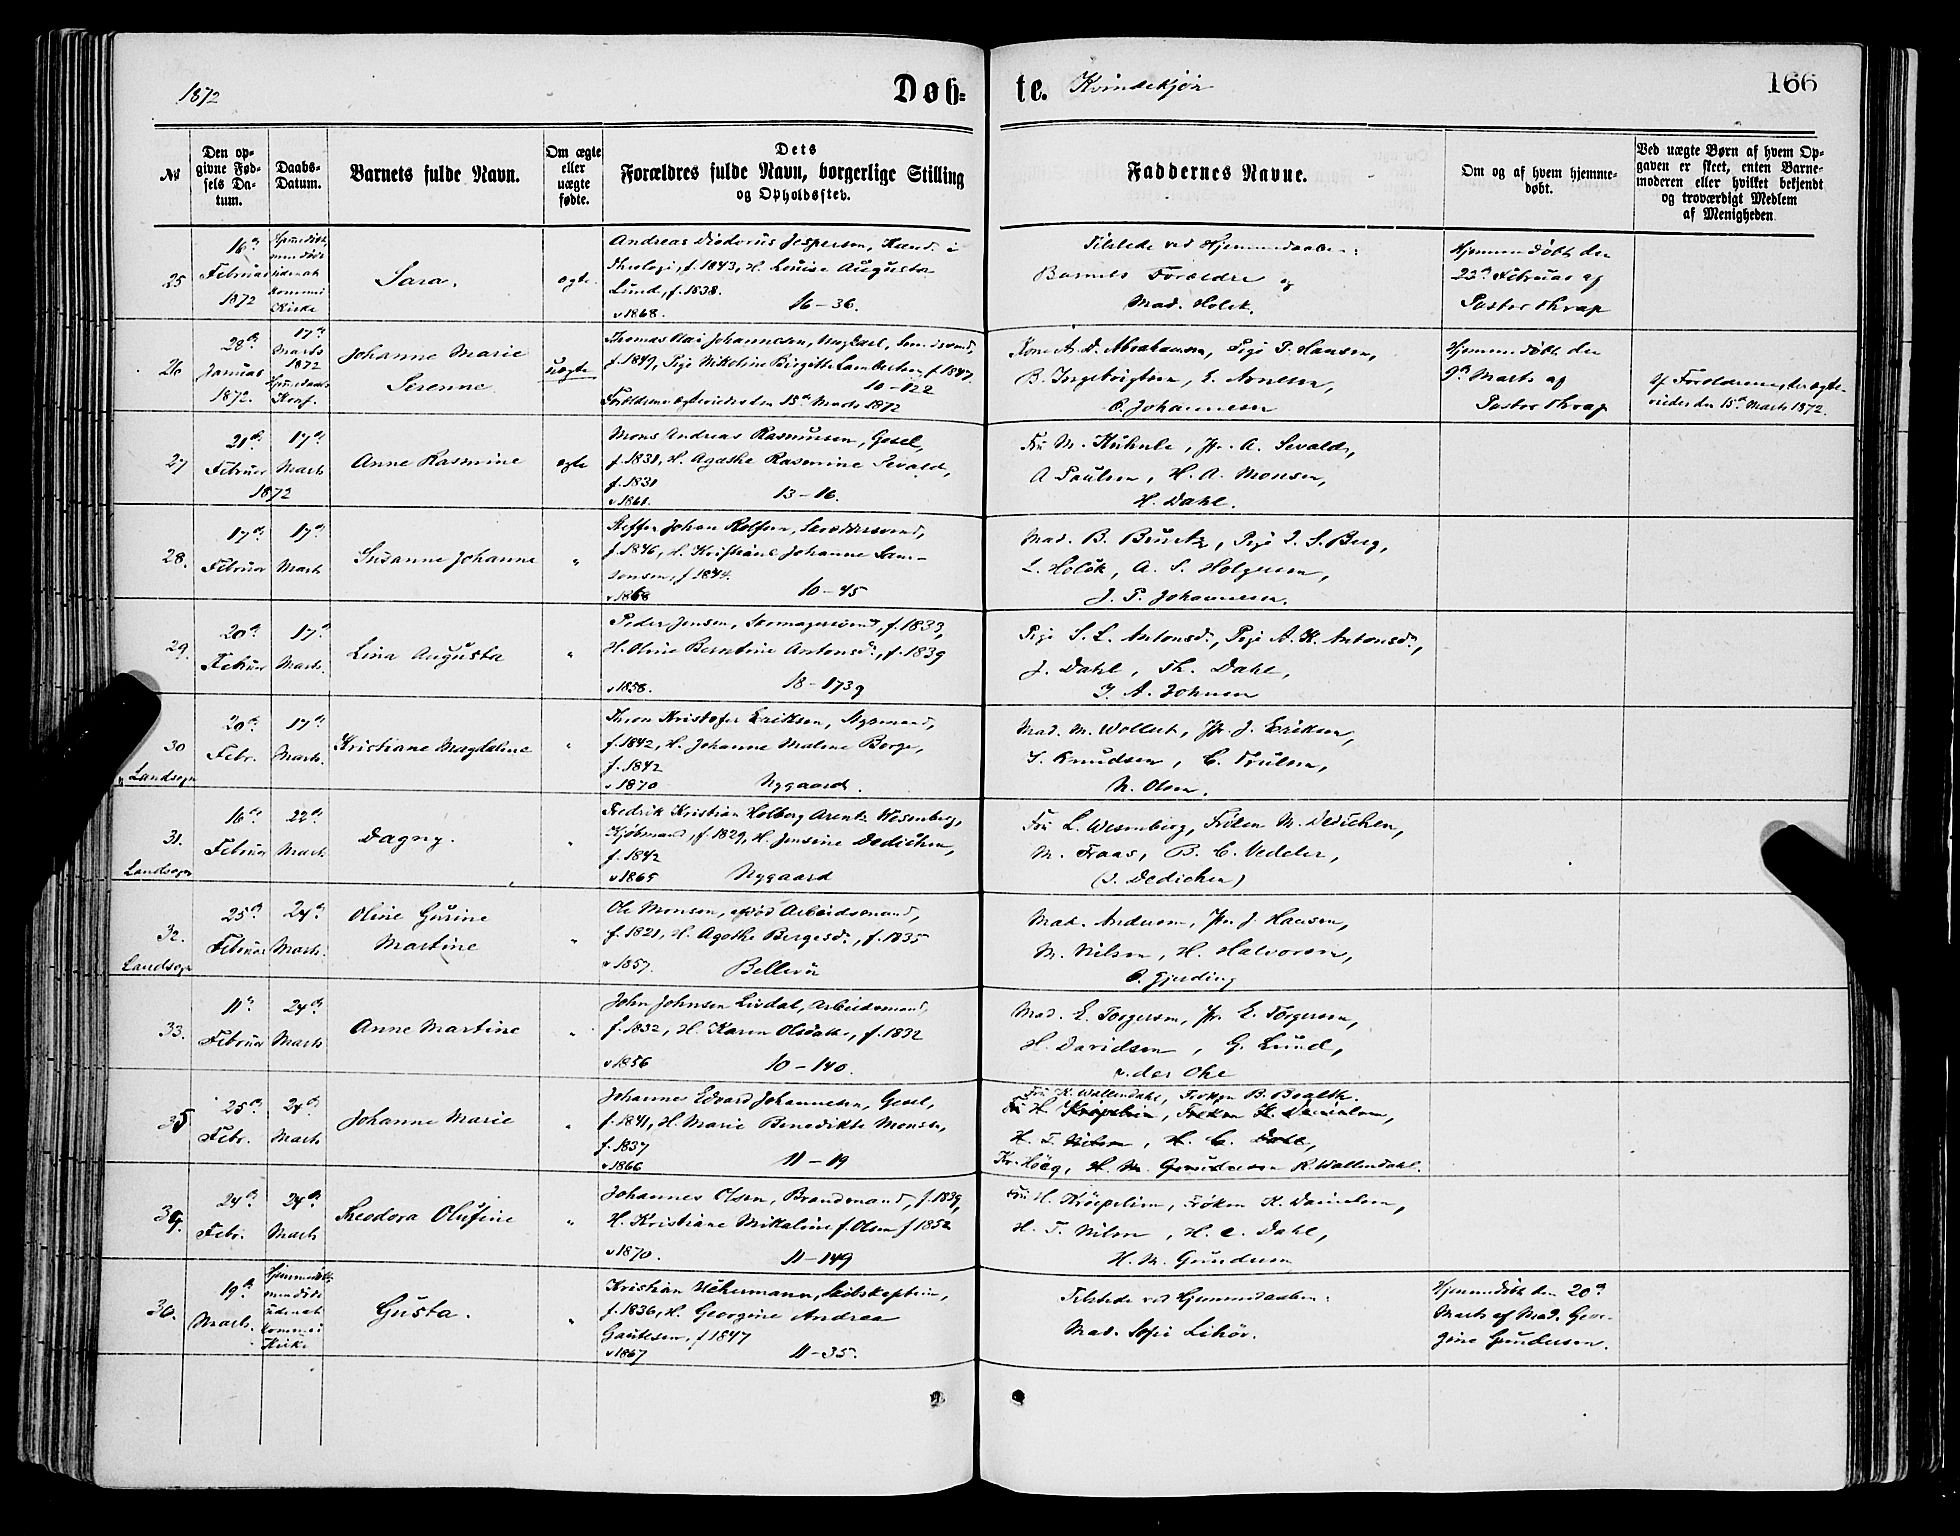 1872
Døb-
te. Kvindekjøn
166
№
Den op-
givne Fød-
sels Da-
tum.
Daabs-
Datum.
Barnets fulde Navn.
Om ægte
eller
uægte
fødte.
Dets
Forældres fulde Navn, borgerlige Stilling
og Opholdssted.
Faddernes Navne.
Om og af hvem hjemme-
døbt.
Ved uægte Børn af hvem Op-
gaven er skeet, enten Barne-
moderen eller hvilket bekjendt
og troværdigt Medlem
af Menigheden.
25
16de
Februar
1872
Hjemmedøbt,
men døde
uden at
komme i
Kirke
Sara.
ægte.
Andreas Diodorus Jespersen, Kand. i
Theologi, f. 1843, H. Louise Augusta
Lund, f. 1838.
v 1868. 16-36.
Tilstede ved Hjemmedaaben:
Barnets Forældre og
Mad. Holck.
Hjemmedøbt den
23de Februar af
Pastor Thrap
26
28de
Januar
1872.
17de
Marts
1872
Johanne Marie
Serenne
uægte
Thomas Johannesen, Ungkarl,
f. 1849, Pige Nikoline Birgitte Lambertsen f 1847.
10-122
Forældrene ægteviedes den 15de Marts 1872
Kone A. D. Abrahamsen, Pige P. Hansen,
B. Ingebrigtsen, E. Arnesen,
Johannesen
Hjemmedøbt den
9de Marts af
Pastor Thrap
Forældrene ægte-
viedes den 15de Marts 1872.
27
21de
Februar
1872
17de
Marts
Anne Rasmine
ægte
Mons Andreas Rasmussen, Gesel,
f. 1831, H. Agathe Rasmine Sevald,
f. 1831
v 1861. 13-16.
Fru M. Kühnle, Jfr. A. Sevald,
A Paulsen, H. A. Monsen,
H. Dahl.
28.
17de
Februar
17de
Marts
Susanne Johanne
"
Steffen Johan Rolfsen,
f. 1846, H. Kristiane Johanne Sam-
sonsen, f 1844.
v 1868 10-45
Mad. B. Pige J. S. Berg,
L. Holck, A. S. Holgersen,
J. P. Johannesen.
29.
20de
Februar
17de
Marts.
Lina Augusta
"
Peder Jensen, Skomagersvend, f. 1833,
H. Oline Berntine Antonsdr., f. 1839
v 1858. 18-173g
Pige S. L. Antonsdr., Pige A. K. Antonsdr.,
J. Dahl, Th. Dahl,
J. A. Johnsen
30
Landsogn
20de
Febr.
17de
Marts.
Kristiane Magdaline
"
Kristofer Eriksen,
f. 1842, H. Johanne Malene Berge,
f. 1842
v 1870 Nygaard.
Mad. M. Wollert, Jfr. J. Eriksen,
S. Knudsen, C. Trulsen,
N. Olsen.
31.
Landsogn
16de
Februar
22de
Marts
Dagny.
"
Fredrik Kristian Holberg Arentz Wesenberg,
Kjøbmand, f 1829, H. Jensine Dedichen,
f. 1842
v 1865 Nygaard
Fru L. Wesenberg, Frøken M. Dedichen,
M. Traas, B. C. Vedeler,
(J. Dedichen)
32.
Landsogn
25de
Februar
24de
Marts.
Oline Gurine
Martine
"
Ole Monsen, Arbeidsmand,
f. 1821, H. Agathe Bergesdr., f. 1835
v 1857. Bellevü
Mad. Andersen, Jfr. J. Hansen,
M. Nilsen, H. Halvorsen,
Gjerding
33.
11te
Februar
24de
Marts
Anne Martine
"
John Johnsen Livdal, Arbeidsmand,
f. 1832, H. Karen Olsdatter, f. 1832
v 1856 10-140.
Mad. E. Torgersen, Jfr. E. Torgersen,
H. Davidsen, G. Lund,
v. der Ohe
35
25de
Febr.
24de
Marts
Johanne Marie
"
Johannes Edvard Johannesen, Gesel,
f. 1841, H. Marie Benedikte Monsen,
f. 1837
v 1866 11-19
Fru K. Wallendahl, Frøken B.
Fru H. Kröpelien, Frøken K. Danielsen,
H. T. Nilsen, H. C. Dahl,
Kr. Höeg, H. M. Gundersen R. Wallendahl.
24de
Febr.
24de
Marts
Theodora Olufine
"
Johannes Olsen, Brandmand, f. 1839,
H. Kristiane Mikaline f. Olsen f 1852
v 1870. 11-149
Fru H. Kröepelien, Frøken K. Danielsen,
H. T. Nilsen, H. C. Dahl,
H. M. Gundersen
36.
19de
Marts.
Hjemmedøbt,
men døde
uden at
komme i
Kirke
Gusta.
"
Kristian Uchermann, Skibskaptein,
f. 1836, H. Georgine Andrea
Gautesen, f 1847
v 1867 11-35.
Tilstede ved Hjemmedaaben:
Mad. Sofie
Hjemmedøbt den 20de
Marts af Mad. Geor-
gine Gundersen.